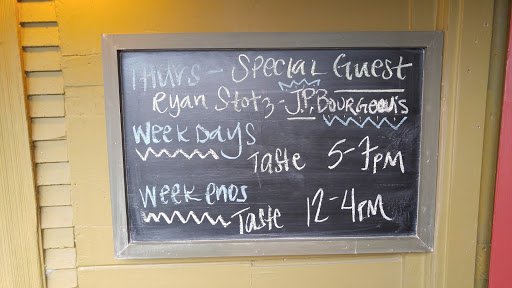 THURS - SPECIAL GUEST
Ryan Stotz - J.P. BOURGEOUIS
WEEKDAYS
TASTE 5-7PM
WEEKENDS
TASTE 12-4PM